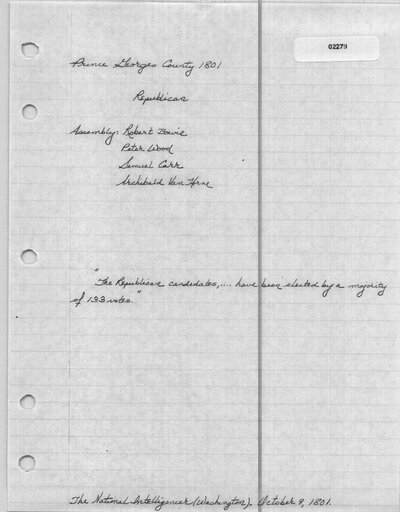 02279
Prince Georges County 1801
Republican
Assembly: Robert Bowie
Peter Wood
Samuel Carr
Archibald Van Horne
"The Republican candidates,.... have been elected by a majority
of 133 votes."
The National Intelligencer (Washington). October 9, 1801.